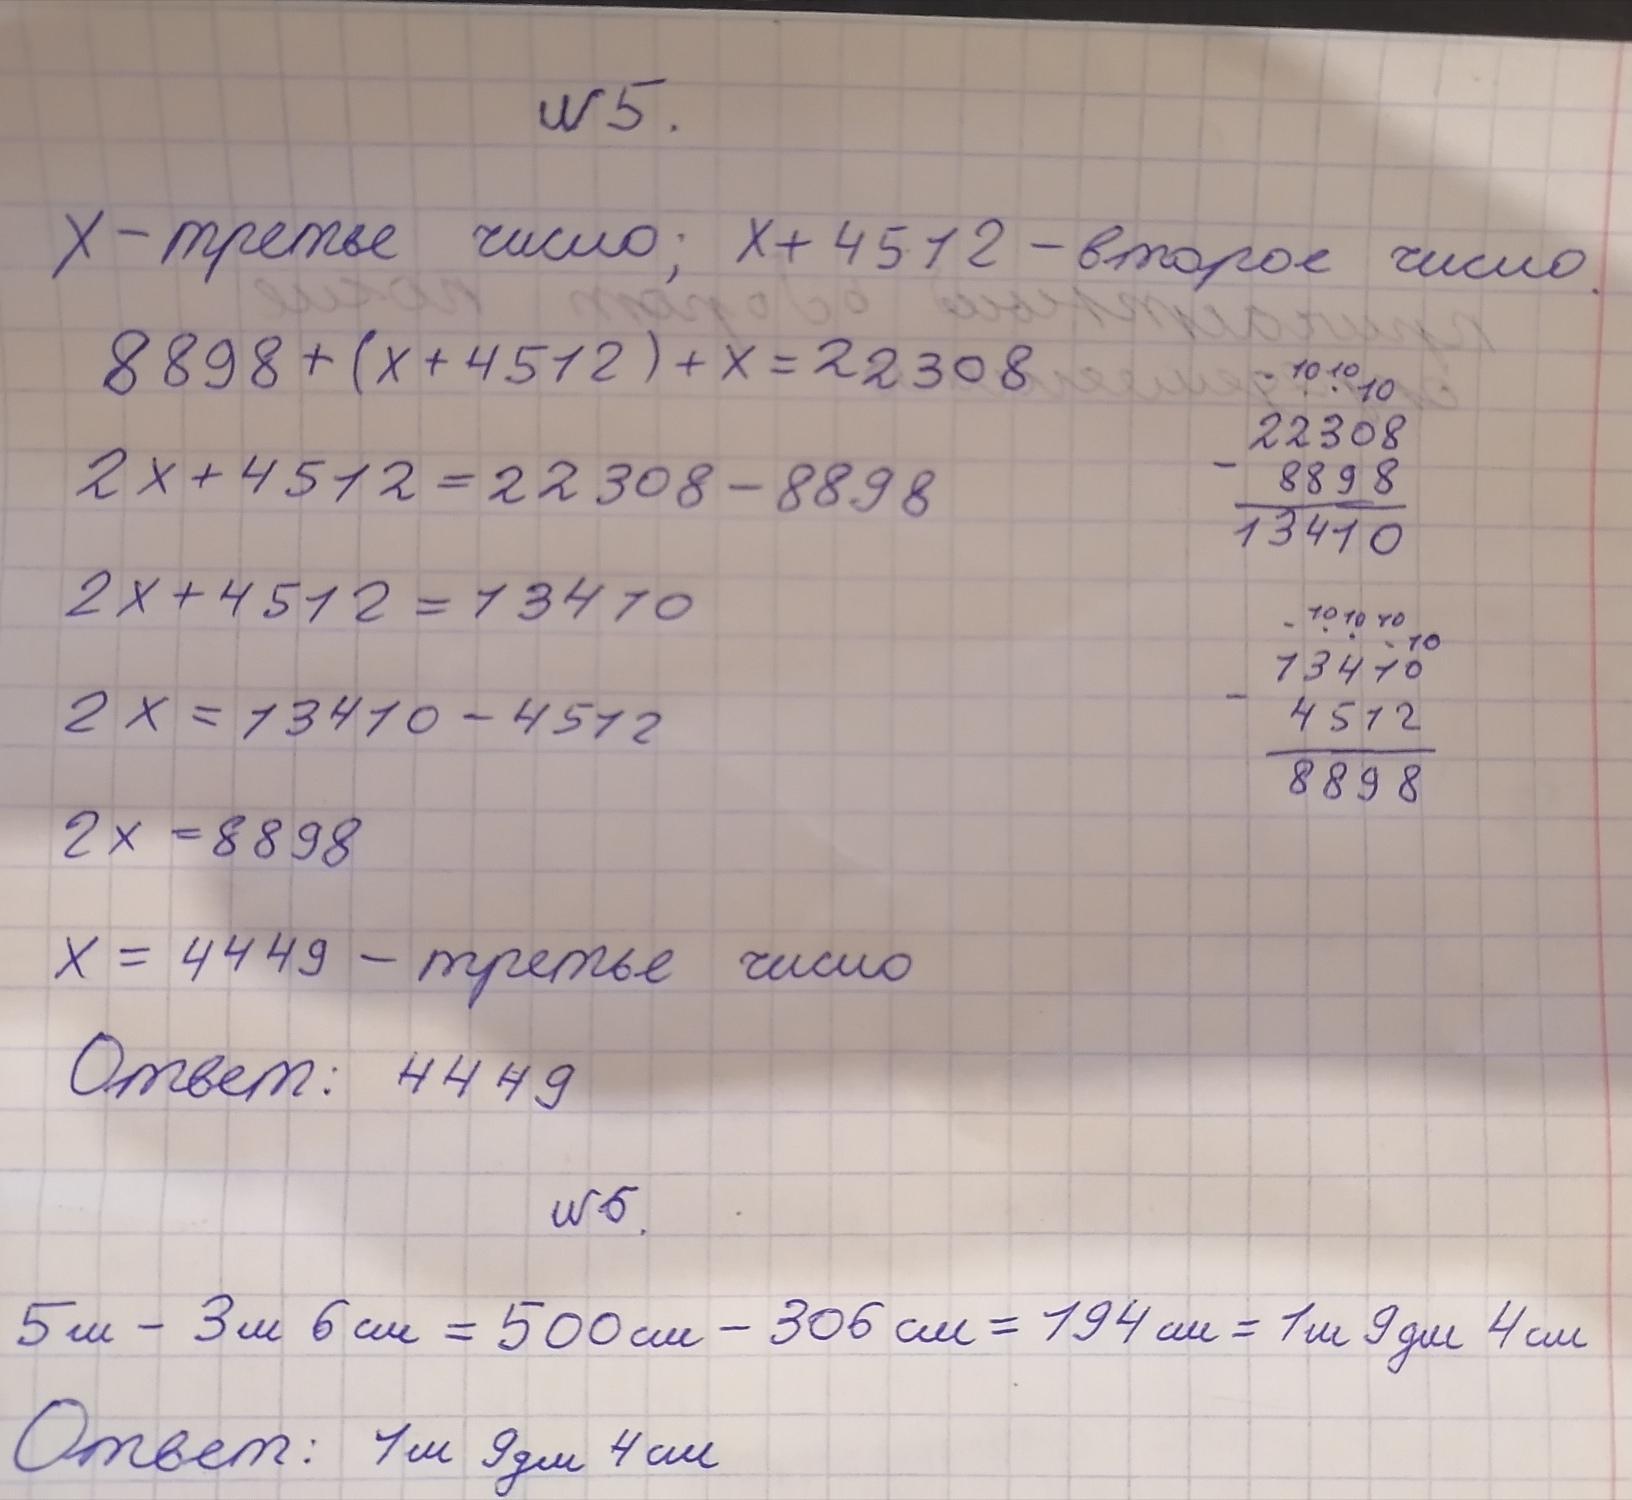 №5.
x - третье число; x + 4512 - второе число.
8898 + (x + 4512) + x = 22308
2x + 4512 = 22308 - 8898
2x + 4512 = 13410
2x = 13410 - 4512
2x = 8898
x = 4449 - третье число
Ответ: 4449
10 10 10
22308
- 8898
13410
10 10 10 10
13410
- 4512
8898
№6.
5м - 3м 6см = 500см - 306см = 194см = 1м 9дм 4см
Ответ: 1м 9дм 4см